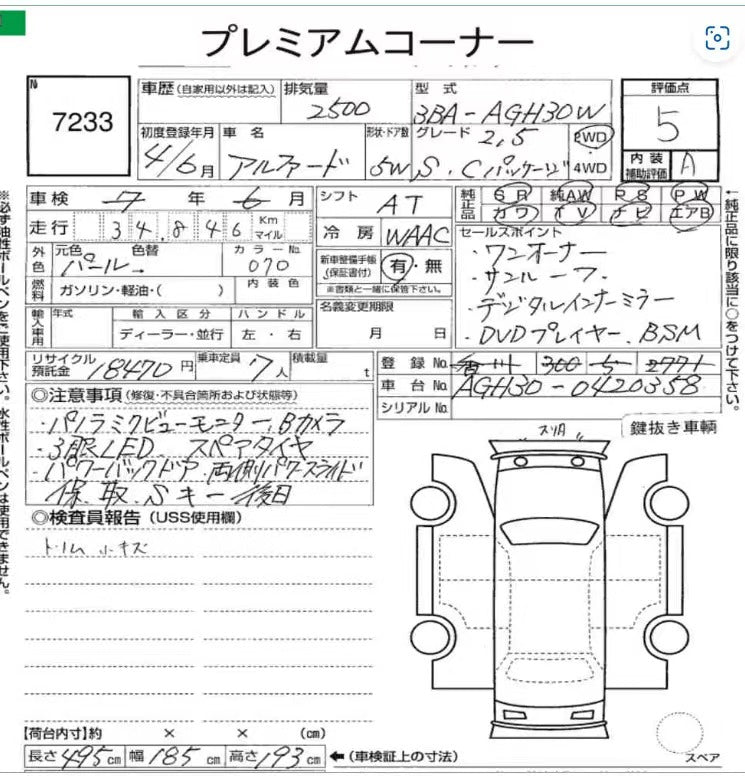 プレミアムコーナー
No 7233
車歴 (自家用以外は記入)
排気量 2500
型式 3BA-AGH30W
評価点 5
初度登録年月 4/6月
車名 アルファード
形状・ドア数 5W
グレード 2,5 S・Cパッケージ
2WD
4WD
内装補助評価 A
車検 7年6月
走行 34,846 Km マイル
シフト AT
冷房 WAAC
純正品 SR 純AW PS PW
カワ TV ナビ エアB
←純正品に限り該当に○をつけて下さい。
外色 元色 パール 色替
カラーNo. 070
新車整備手帳(保証書付) 有・無
※書類と一緒に保管下さい。
セールスポイント
・ワンオーナー
・サンルーフ
・デジタルインナーミラー
・DVDプレイヤー、BSM
燃料 ガソリン・軽油・( )
内装色
名義変更期限 月 日
輸入車用 年式 輸入区分 ハンドル
ディーラー・並行 左・右
リサイクル預託金 18470円
乗車定員 7人
積載量 t
登録No. 香川 300 ち 2771
車台No. AGH30-0420358
シリアルNo.
◎注意事項(修復・不具合箇所および状態等)
・パノラミクビューモニター、Bカメラ
・3眼LED、スペアタイヤ
・パワーバックドア、両側パワースライド
保、取、Sキー後日
鍵抜き車輌
スリA
◎検査員報告(USS使用欄)
トリム 小キズ
【荷台内寸】約 × × (cm)
長さ495cm 幅185cm 高さ193cm ←(車検証上の寸法)
スペア
※必ず油性ボールペンをご使用下さい。水性ボールペンは使用できません。